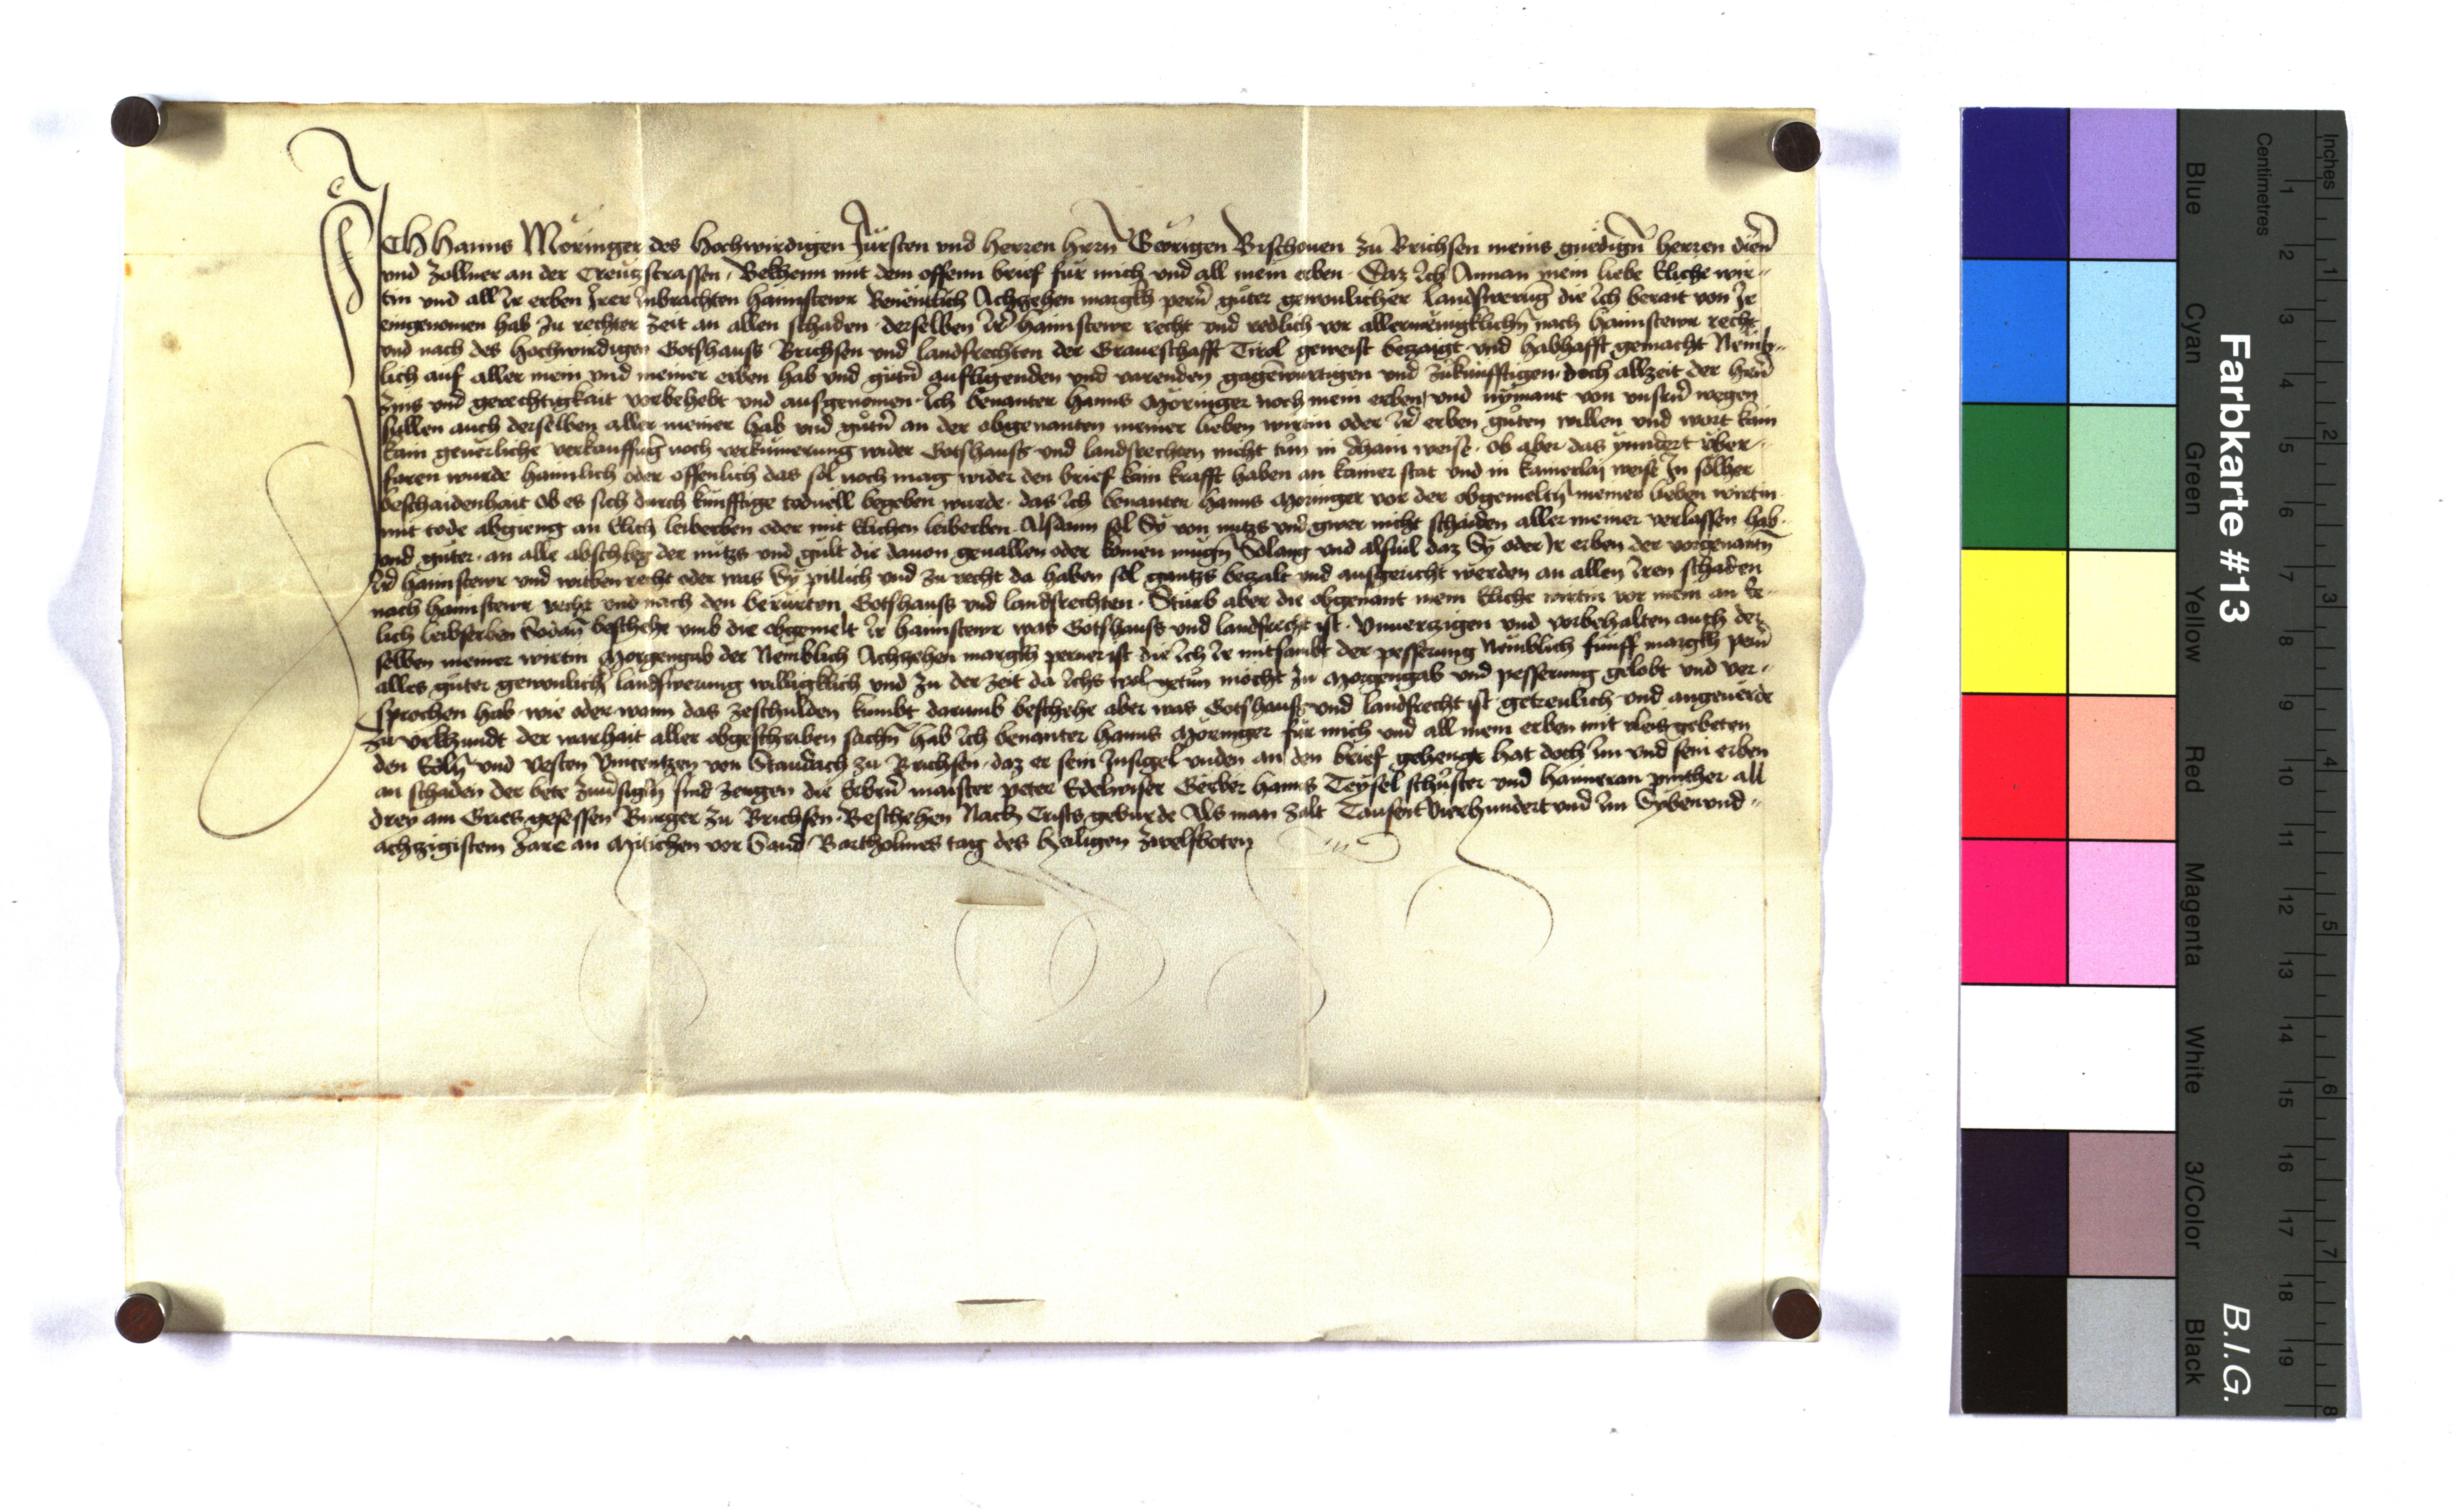 ICH Hanns Möringer des Hochwirdigen Fürsten vnd Herren herrn Georigen Bischouen zu Brichsen meins gnedign̄ herren dien̄
vnd Zollner an der Creützstrassen, Bekhenn mit dem offenn brief für mich vnd all mein erben. Daz Ich Annan mein liebe Eliche wir-
tin vnd all Ir erben Irer Inbrachten haimstewr Benentlich Achzehen margkh pern̄ güter gewonlicher landswerūg die Ich berait von Ir
eingenomen hab zu rechter zeit an allen schaden. derselben Ir̄ haimstewr recht vnd redlich vor allermenigklichn̄ nach haimstewr recht
vnd nach des hochwirdigen Gotshauss Brichsen vnd landsrechten der Graueschafft Tirol geweist bezaigt vnd habhafft gemacht Nemb-
lich auf aller mein vnd meiner erben hab vnd gütn̄ aufligenden vnd varenden gagēwurtigen vnd zükünfftigen. doch allzeit der herrn̄
Zins vnd gerechtigkait vorbehebt vnd ausgenomen. Ich benanter Hanns Moringer noch mein erben, vnd nÿmant von vnsern̄ wegen
sullen auch derselben aller meiner hab vnd gütn̄ an der obgenanten meiner lieben wirtin oder Ir̄ erben güten willen vnd wort kain
kain geuerliche verkauffūg noch verkümerung wider Gotshauss vnd landsrechten nicht tün in dhain weise. Ob aber das ÿndert über-
faren wurde haimlich oder offenlich das sol noch mag wider den brief kain krafft haben an kainer stat vnd in kainerlaÿ weise In sölher
beschaidenhait Ob es sich durch künfftige toduell begeben wurde. das Ich benanter Hanns Moringer vor der obgemeltn̄ meiner lieben wirtin
mit tode abgieng an Elich leiberben oder mit Elichen leiberben. Alsdann sol Sÿ von nutzs vnd gwer nicht schaiden aller meiner verlassen hab.
vnd guter. an alle abschleg der nützs vnd gült die dauon geuallen oder komen mügn̄ Solang vnd alsuil daz Sÿ oder Ir erben der vorgenantn̄
Ir̄ haimstewr vnd witbenrecht oder was Sÿ pillich vnd zu recht da haben sol gantzs bezalt vnd ausgericht werden an allen Iren schaden
nach haimstewr recht vnd nach den berürten Gotshauss vnd landsrechten. Stürb aber die obgenant mein Eliche wirtin vor mein an E-
lich leibserben Sodan̄ beschehe vmb die obgemelt Ir haimstewr was Gotshauss vnd landsrecht ist. Vnuerzigen vnd vorbehalten auch der
selben meiner wirtin Morgengab der Nemblich Achzehen margkh perner ist die Ich Ir mitsambt der pesserung Nemblich fünff margkh pern̄
alles güter gewonlichr̄ landswerung willigklich vnd zu der zeit da Ichs wol getün möcht zu Morgengab vnd pesserung gelobt vnd ver-
sprochen hab. wie oder wann das zeschulden kumbt darumb beschehe aber was Gotshauss vnd landsrecht ist getreulich vnd angeuerde
Zu vrkhundt der warhait aller obgeschriben sachn̄ hab Ich benanter Hanns Möringer für mich vnd all mein erben mit vleis gebeten
den Edln̄ vnd vesten Vincentzen von Staudach zu Brichsen. daz er sein Insigel vnden an den brief gehengt hat doch Im vnd sein erben
an schaden der bete Zum̄sigln̄ sind zeugen die Erbern̄ maister Peter Edelweiser Gerber Hanns Teÿsel schüster vnd Haimeran pinther all
drey am Gries gesessen Burger zu Brichsen. Beschehen Nach Crists geburde Als man zalt Tausent Vierhundert vnd Im Sybenvnd-
achzigistem Jare an Mitichen vor Sand Bartholmes tag des heiligen zwelfboten
Farbkarte #13
B.I.G.
Inches 1 2 3 4 5 6 7 8
Centimetres 1 2 3 4 5 6 7 8 9 10 11 12 13 14 15 16 17 18 19
Blue Cyan Green Yellow Red Magenta White 3/Color Black